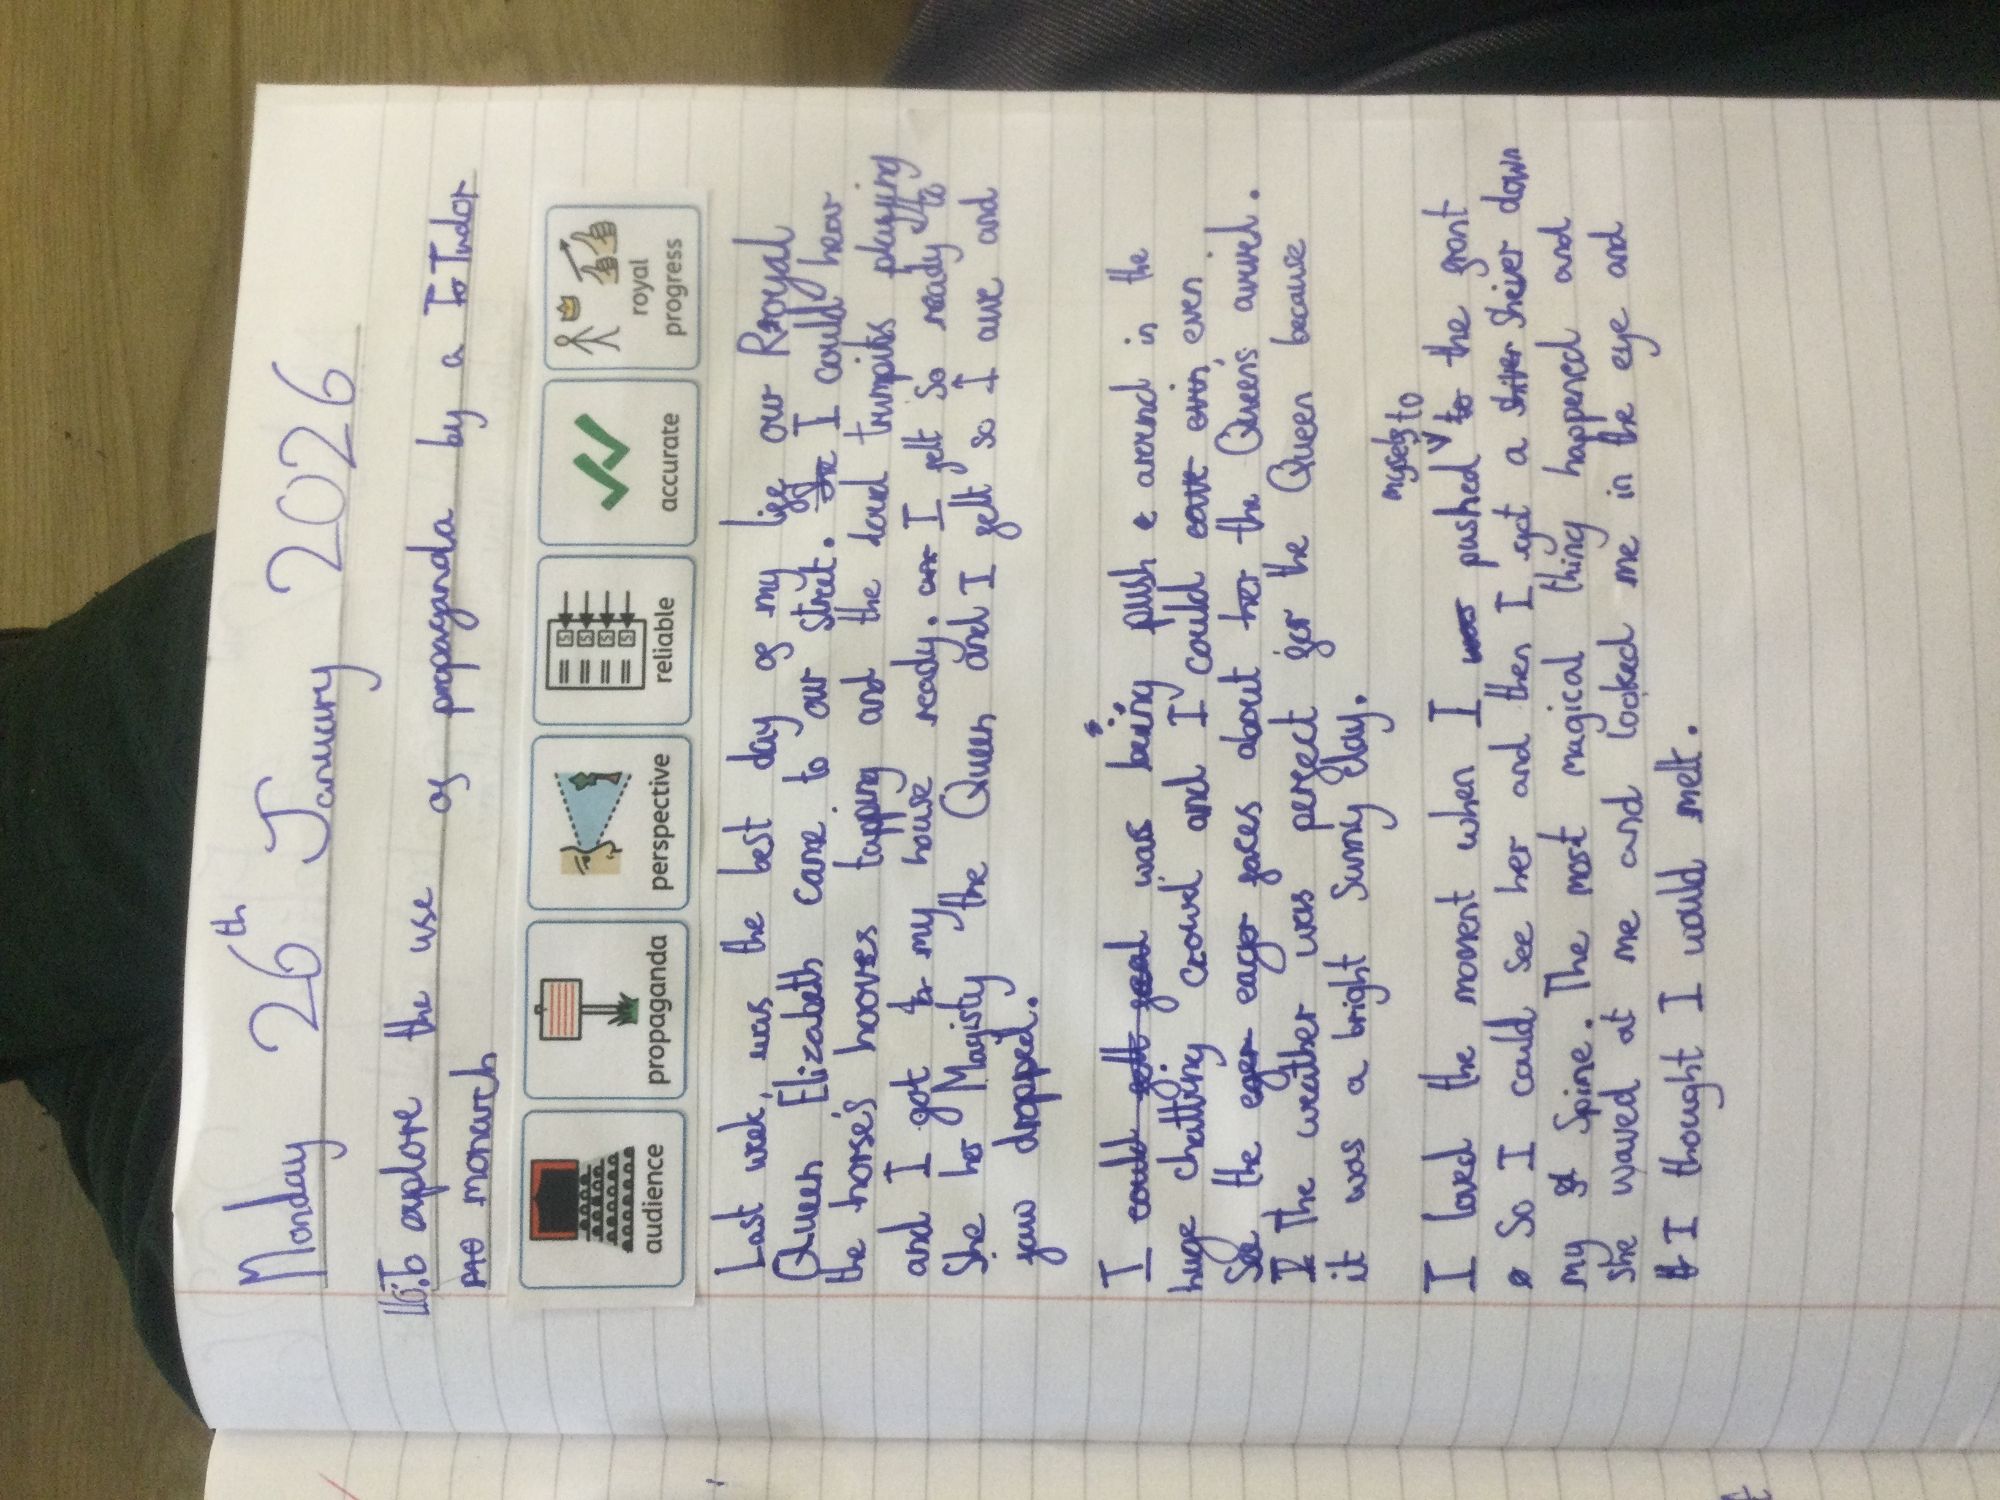 Monday 26th January 2026
LO: To explore the use of propaganda by a Tudor
monarch
audience
propaganda
perspective
reliable
accurate
royal
progress
Last week, was the best day of my life our Royal
Queen Elizabeth came to our street. I could hear
the horse's hooves tapping and the loud trumpits playing
and I got to my house ready. I felt so ready to
She her Magisty the Queen and I felt so I awe and
jaw dropped.
I could was being push around in the
huge chatting crowd and I could even
See the eager faces about the Queens arrived.
The weather was perfect for the Queen because
it was a bright Sunny day.
I loved the moment when I pushed myself to the front
So I could see her and then I got a shiver down
my Spine. The most magical thing happened and
she waved at me and looked me in the eye and
I thought I would melt.